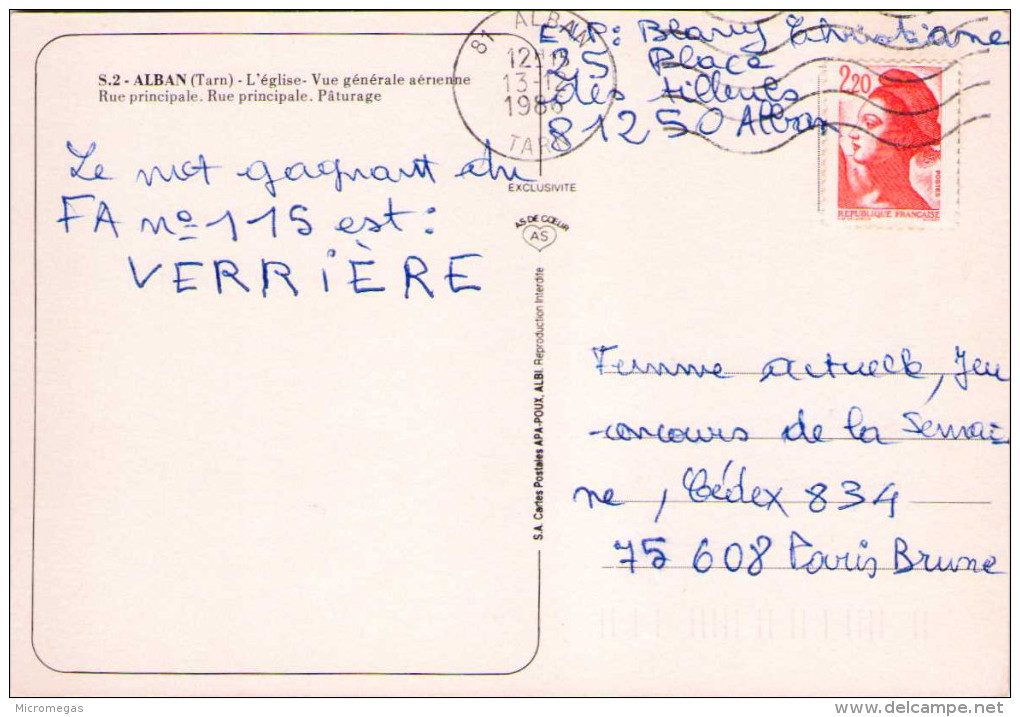 S.2 - ALBAN (Tarn) - L'église- Vue générale aérienne
Rue principale. Rue principale. Pâturage
Le mot gagnant du
FA nº 115 est :
VERRIÈRE
81 ALBAN
13-12
1986
TARN
EXCLUSIVITE
AS DE CŒUR
AS
S.A. Cartes Postales APA-POUX, ALBI. Reproduction Interdite
Exp: Blavy Christiane
25 Place
des tilleuls
81250 Alban
2,20
POSTES
REPUBLIQUE FRANÇAISE
Femme actuelle, Jeu
-concours de la Semai-
ne, Cédex 834
75 608 Paris Brune
Micromegas
delcampe.net